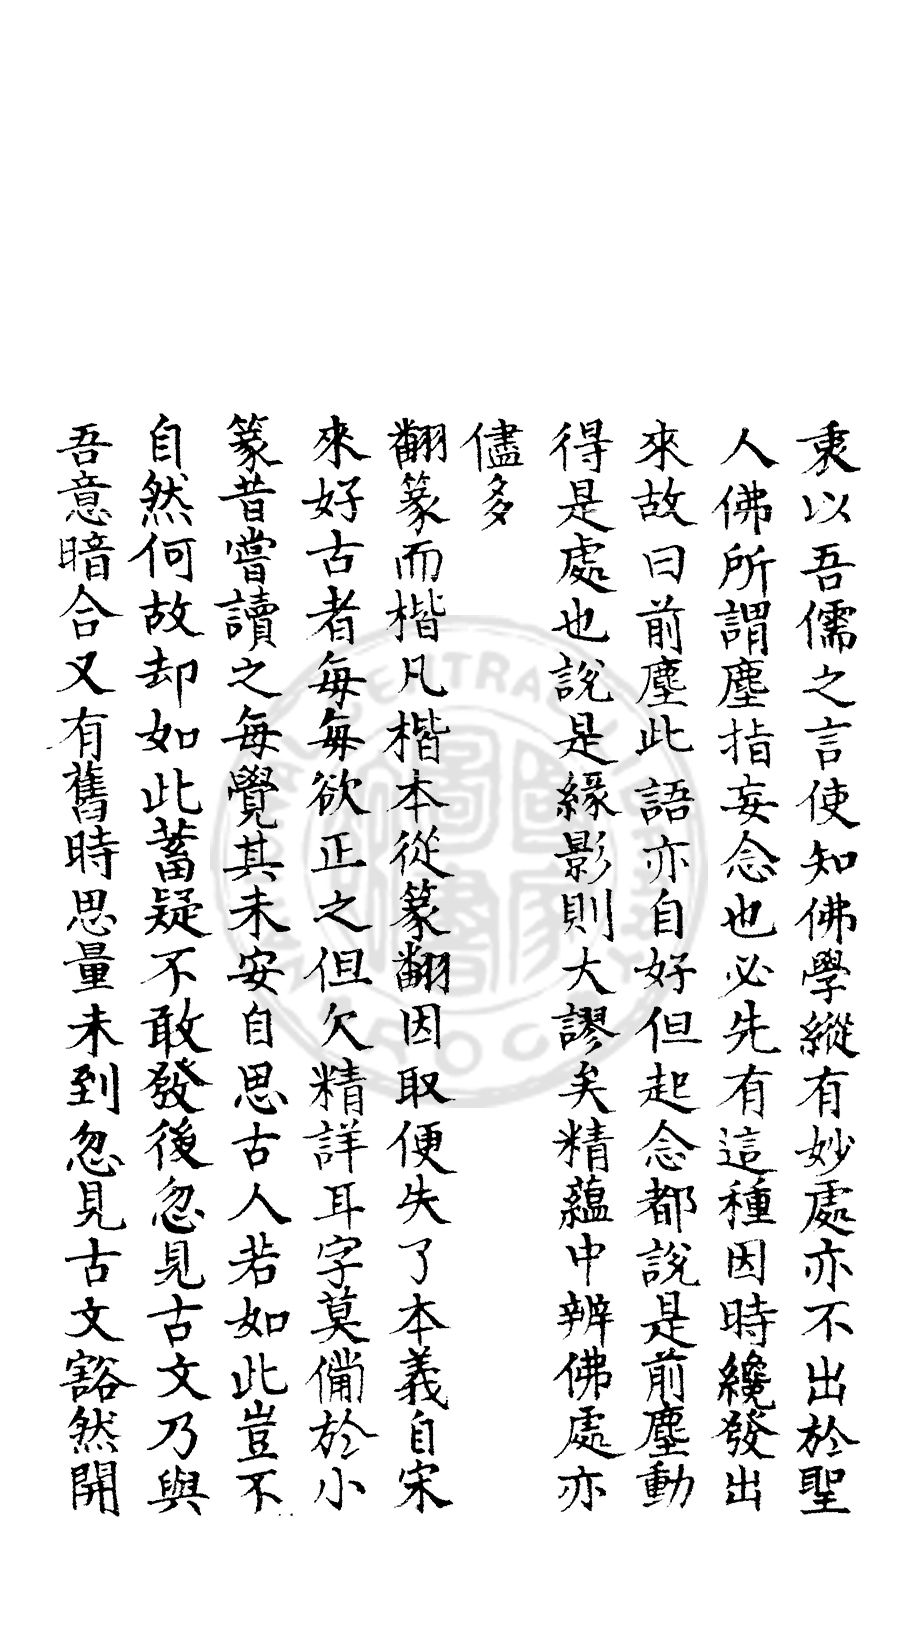 衷以吾儒之言使知佛學縱有妙處亦不出於聖
人佛所謂塵指妄念也必先有這種因時纔發出
來故曰前塵此語亦自好但起念都說是前塵動
得是處也說是緣影則大謬矣精蘊中辨佛處亦
儘多
翻篆而楷凡楷本從篆翻因取便失了本義自宋
來好古者每每欲正之但欠精詳耳字莫備於小
篆昔嘗讀之每覺其未安自思古人若如此豈不
自然何故却如此蓄疑不敢發後忽見古文乃與
吾意暗合又有舊時思量未到忽見古文豁然開
CENTRA
ROC